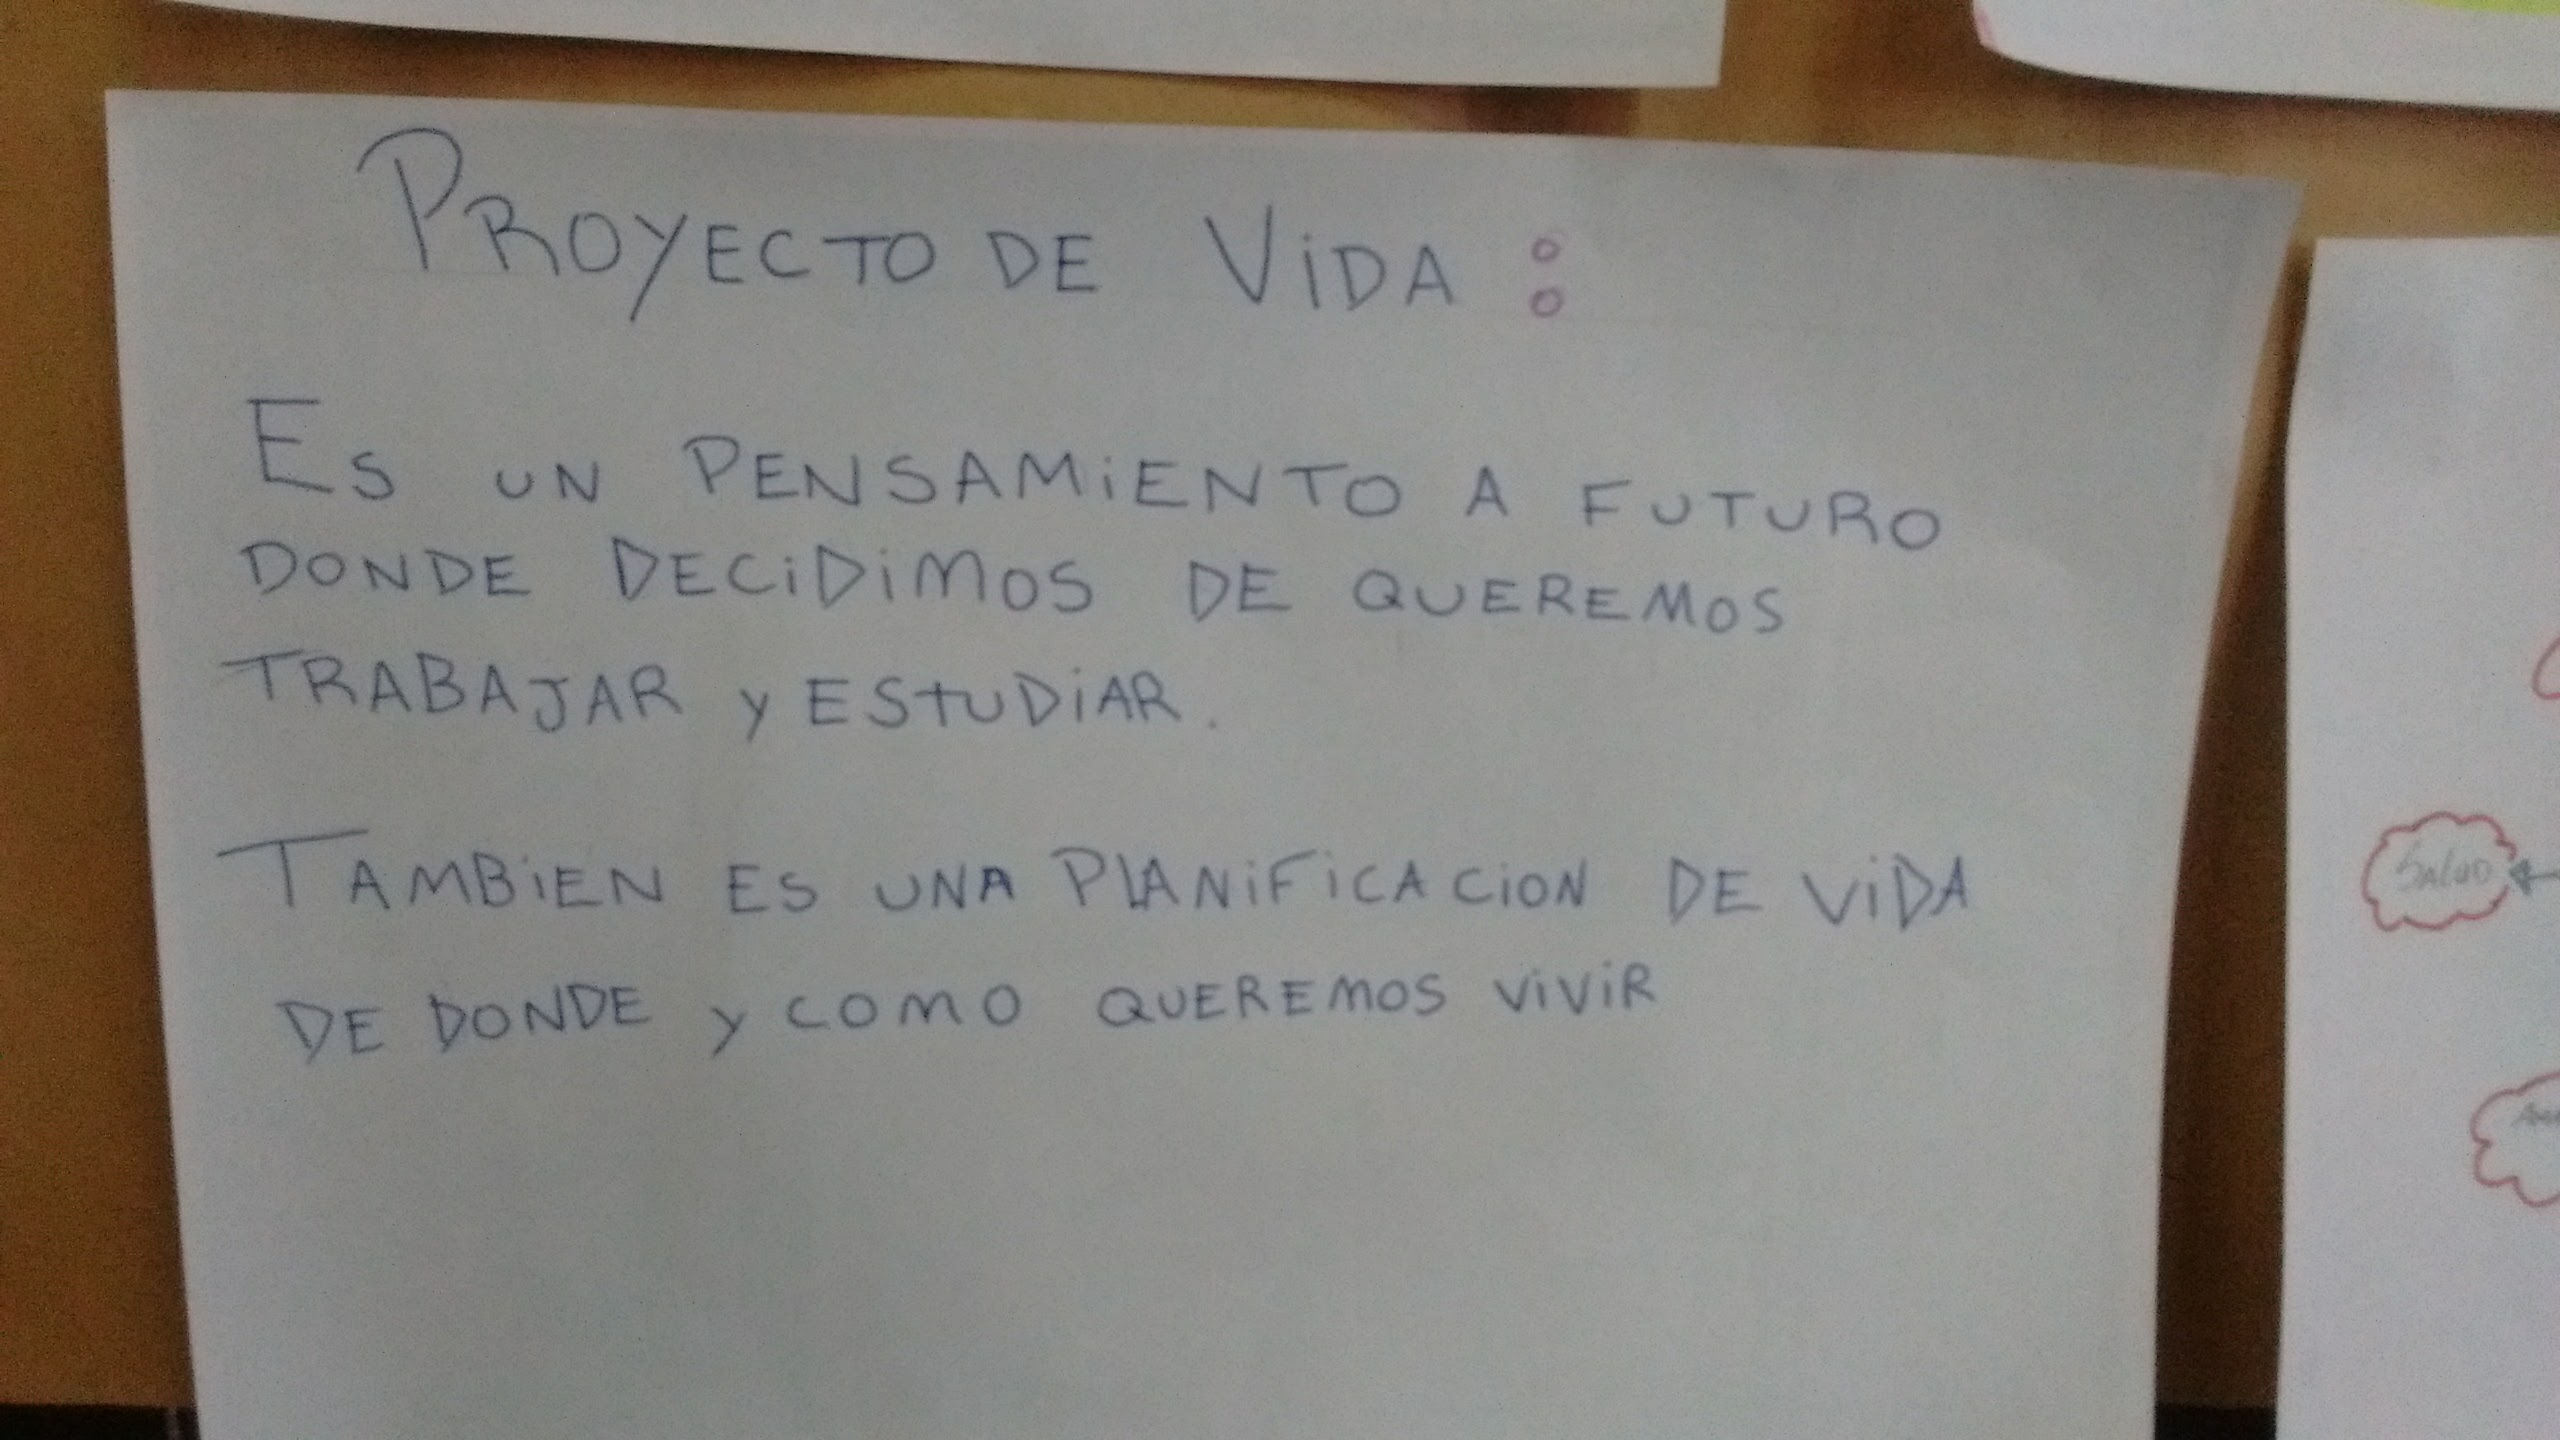 PROYECTO DE ViDA :
ES UN PENSAMiENTO A FUTURO
DONDE DECiDiMOS DE QUEREMOS
TRABAJAR y ESTUDiAR.
TAMBiEN ES UNA PLANiFiCACiON DE ViDA
DE DONDE y COMO QUEREMOS ViViR
SALUD